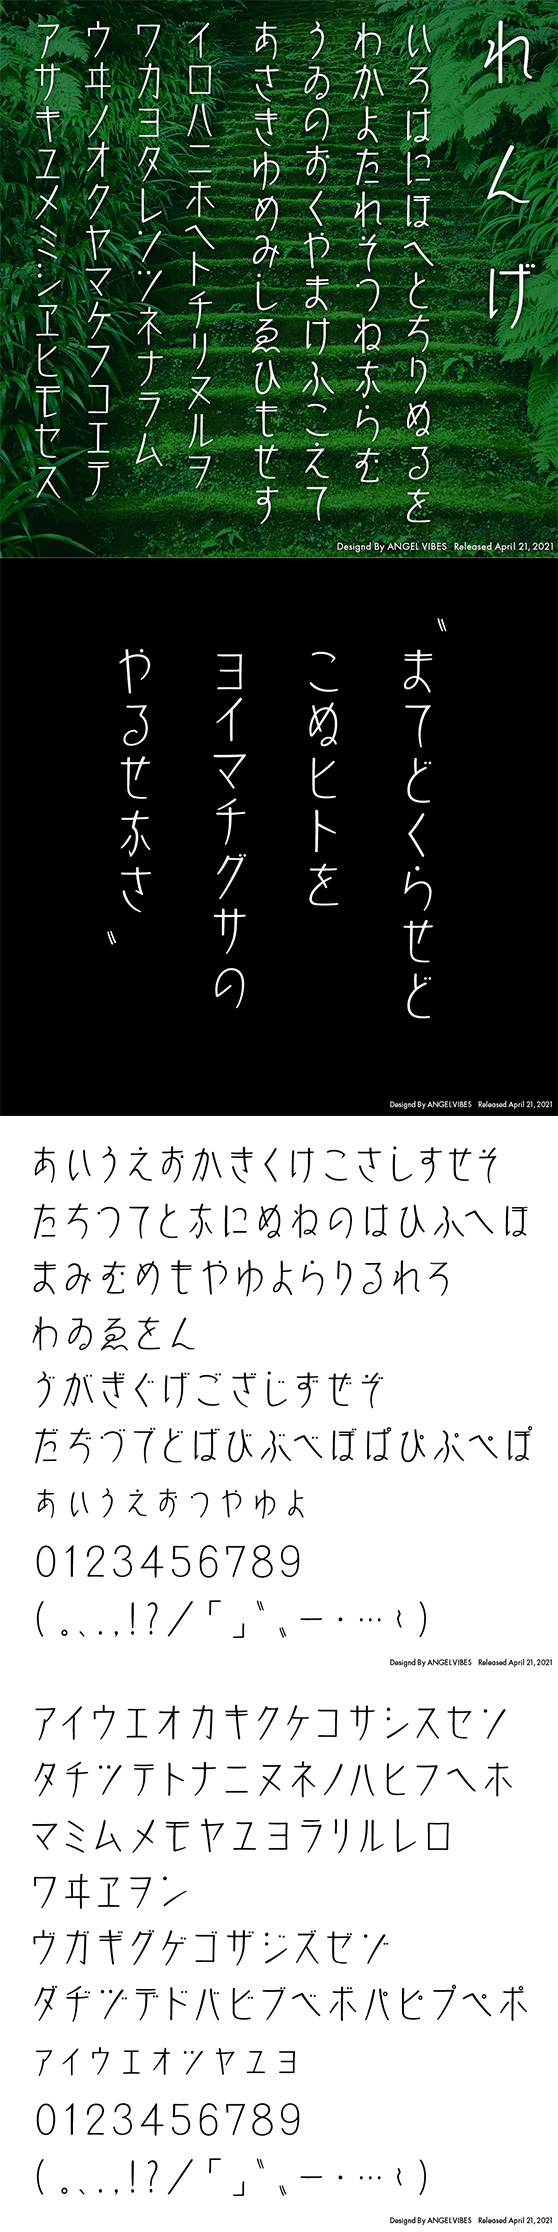 れんげ
いろはにほへとちりぬるを
わかよたれそつねならむ
うゐのおくやまけふこえて
あさきゆめみしゑひもせす
イロハニホヘトチリヌルヲ
ワカヨタレソツネナラム
ウヰノオクヤマケフコエテ
アサキユメミシヱヒモセス
Designd By ANGEL VIBES Released April 21, 2021
〝まてどくらせど
こぬヒトを
ヨイマチグサの
やるせなさ〟
Designd By ANGELVIBES Released April 21, 2021
あいうえおかきくけこさしすせそ
たちつてとなにぬねのはひふへほ
まみむめもやゆよらりるれろ
わゐゑをん
ゔがぎぐげござじずぜぞ
だぢづでどばびぶべぼぱぴぷぺぽ
ぁぃぅぇぉっゃゅょ
0123456789
(。、.,!?/「」〝〟ー・…~)
Designd By ANGELVIBES Released April 21, 2021
アイウエオカキクケコサシスセソ
タチツテトナニヌネノハヒフヘホ
マミムメモヤユヨラリルレロ
ワヰヱヲン
ヴガギグゲゴザジズゼゾ
ダヂヅデドバビブベボパピプペポ
ァィゥェォッャュョ
0123456789
(。、.,!?/「」〝〟ー・…~)
Designd By ANGELVIBES Released April 21, 2021